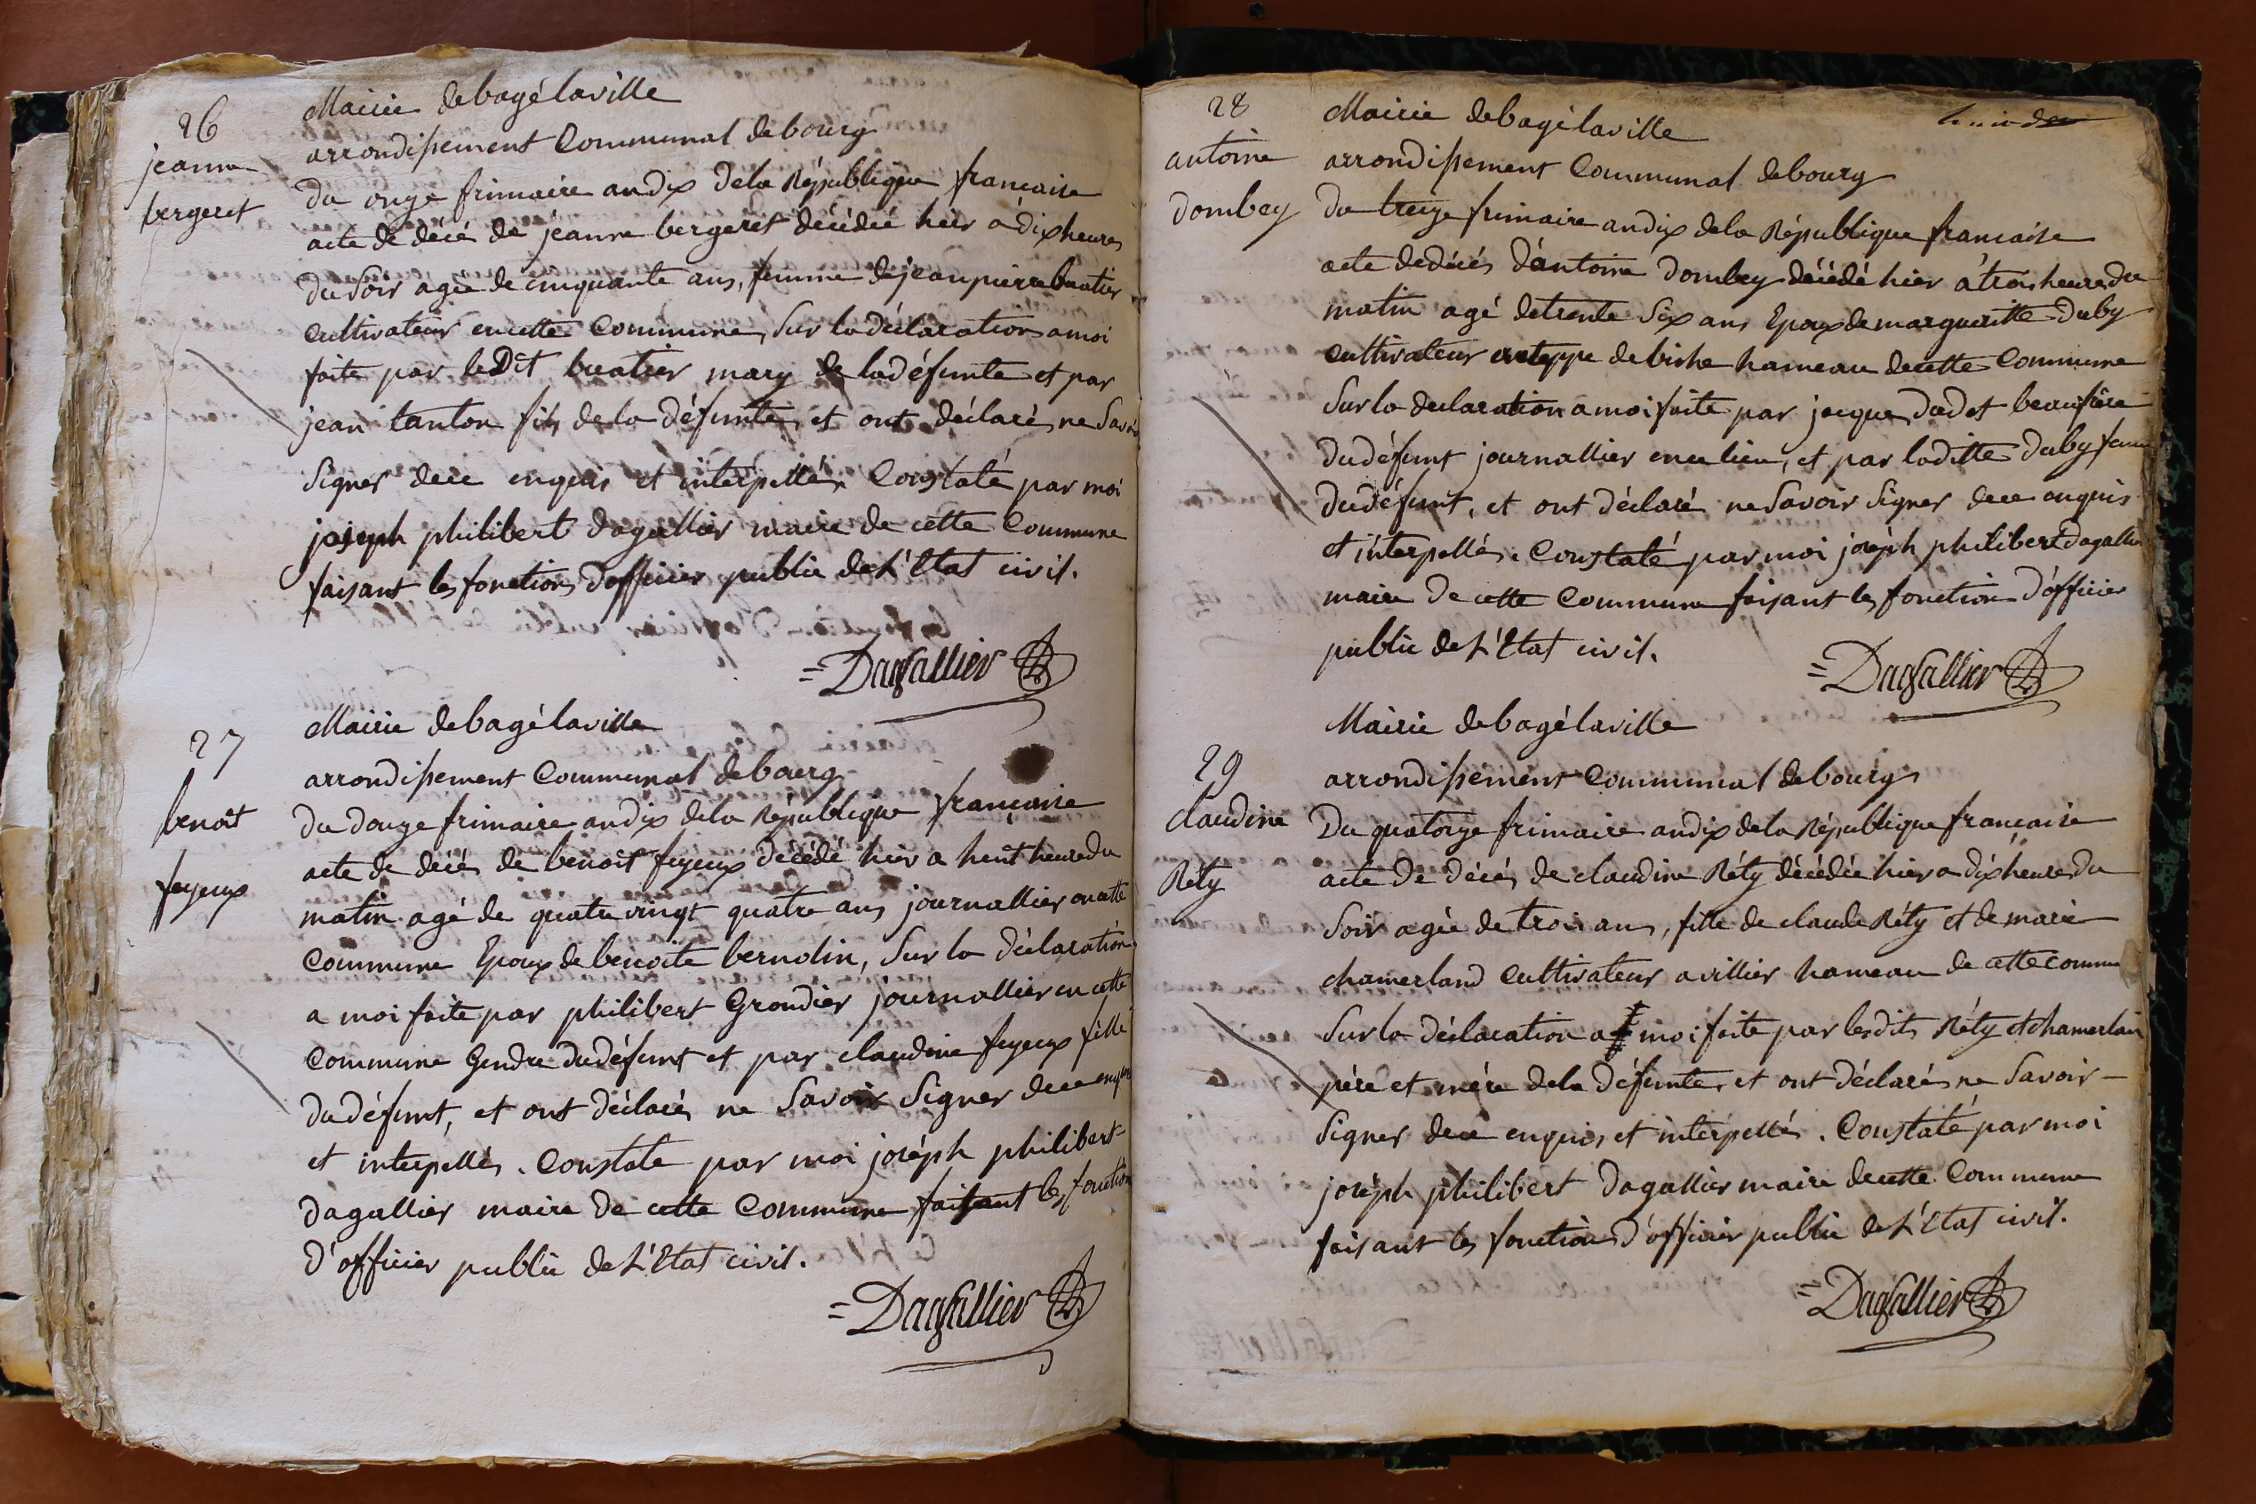 26
jeanne
bergeret
Mairie de bagé laville
arrondissement Communal de bourg
Du onze frimaire an dix de la République francaise
acte de décés de jeanne bergeret décédée hier a dix heures
du Soir agée de cinquante ans, femme de jean pierre buatier
cultivateur en cette Commune, Sur la déclaration a moi
faite par le Dit buatier mary de la défunte et par
jean tanton fils de la défunte, et ont déclaré ne Savoir
Signer de ce enquis et intérpellés. Constaté par moi
joseph philibert dagallier maire de cette Commune
faisant les fonctions d'officier public de L'Etat civil.
=Dagallier
27
benoît
feyeux
Mairie de bagé laville
arrondissement Communal de bourg
Du douze frimaire an dix de la République française
acte de décés de benoît feyeux décédé hier a huit heure du
matin agé de quatre vingt quatre ans journallier en cette
Commune Epoux de benoite bernolin, Sur la déclaration
a moi faite par philibert Grondier journallier en cette
Commune Gendre du défunt et par claudine feyeux fille
du défunt, et ont déclarés ne Savoir Signer de ce enquis
et interpellés. Constaté par moi joséph philibert
dagallier maire de cette Commune faisant les fonction
d'officier public de L'Etat civil.
=Dagallier
28
antoine
dombey
Mairie de bagé laville
arrondissement Communal de bourg
Du treize frimaire an dix de la République francaise
acte de décés d'antoine Dombey décédé hier a trois heure du
matin agé de trente Six ans Epoux de margueritte Duby
cultivateur en teppe de bishe hameau de cette Commune
Sur la declaration a moi faite par jacque Dudet beaufrére
du défunt journallier en ce lieu, et par laditte Duby femme
du défunt, et ont déclaré ne Savoir Signer de ce enquis
et intérpellés. Constaté par moi joséph philibert Dagallier
maire de cette Commune faisant les fonction d'officier
public de L'Etat civil.
=Dagallier
29
claudine
Réty
Mairie de bagé laville
arrondissement Communal de bourg
Du quatorze frimaire an dix de la République francaise
acte de décés de claudine Réty décédée hier a dix heure du
Soir agée de trois ans, fille de claude Réty et de marie
chamerland cultivateur a villier hameau de cette commune
Sur la déclaration a moi faite par les dits Réty et chamerlan
pére et mére de la défunte, et ont déclarés ne Savoir
Signer de ce enquis, et intérpellés. Constaté par moi
joséph philibert dagallier maire de cette Commune
faisant les fonctions d'officier public de L'Etat civil.
=Dagallier